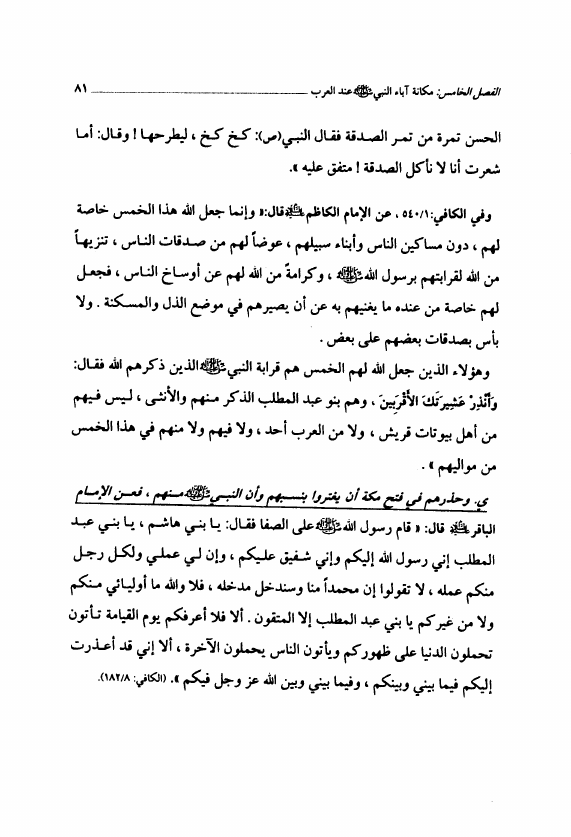 الفصل الخامس: مكانة آباء النبي ﷺ عند العرب ــــــــــــــــــــــــــــ ٨١
الحسن تمرة من تمر الصدقة فقال النبي(ص): كخ كخ ، ليطرحها ! وقال: أما
شعرت أنا لا نأكل الصدقة ! متفق عليه ».
وفي الكافي:٥٤٠/١ ، عن الإمام الكاظم قال:« وإنما جعل الله هذا الخمس خاصة
لهم ، دون مساكين الناس وأبناء سبيلهم ، عوضاً لهم من صدقات الناس ، تنزيهاً
من الله لقرابتهم برسول الله ﷺ ، وكرامةً من الله لهم عن أوساخ الناس ، فجعل
لهم خاصة من عنده ما يغنيهم به عن أن يصيرهم في موضع الذل والمسكنة . ولا
بأس بصدقات بعضهم على بعض .
وهؤلاء الذين جعل الله لهم الخمس هم قرابة النبي ﷺ الذين ذكرهم الله فقال:
وَأَنْذِرْ عَشِيرَتَكَ الأَقْرَبِينَ ، وهم بنو عبد المطلب الذكر منهم والأنثى ، ليس فيهم
من أهل بيوتات قريش ، ولا من العرب أحد ، ولا فيهم ولا منهم في هذا الخمس
من مواليهم » .
ي. وحذرهم في فتح مكة أن يغتروا بنسبهم وأن النبي ﷺ منهم ، فعن الإمام
الباقر قال: « قام رسول الله ﷺ على الصفا فقال: يا بني هاشم ، يا بني عبد
المطلب إني رسول الله إليكم وإني شفيق عليكم ، وإن لي عملي ولكل رجل
منكم عمله ، لا تقولوا إن محمداً منا وسندخل مدخله ، فلا والله ما أوليائي منكم
ولا من غيركم يا بني عبد المطلب إلا المتقون . ألا فلا أعرفكم يوم القيامة تأتون
تحملون الدنيا على ظهوركم ويأتون الناس يحملون الآخرة ، ألا إني قد أعذرت
إليكم فيما بيني وبينكم ، وفيما بيني وبين الله عز وجل فيكم ». (الكافي: ١٨٢/٨).